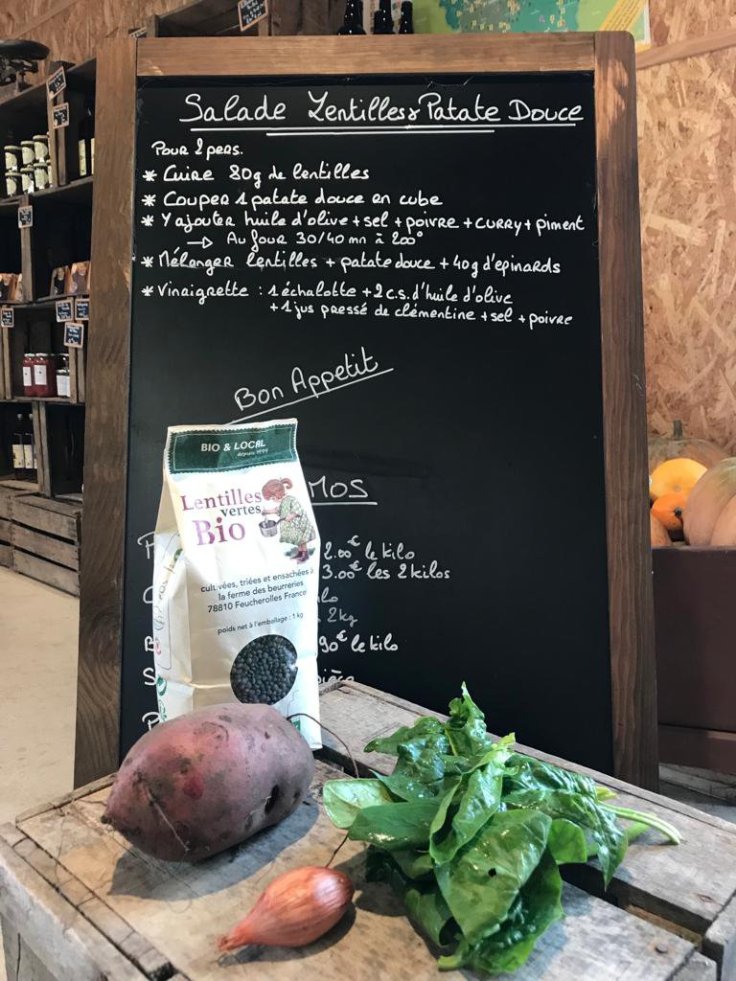 Salade Lentilles & Patate Douce
Pour 2 pers.
* Cuire 80g de lentilles
* Couper 1 patate douce en cube
* Y ajouter huile d'olive + sel + poivre + curry + piment
→ Au four 30/40 mn à 200°
* Mélanger lentilles + patate douce + 40g d'epinards
* Vinaigrette : 1 échalotte + 2 c.s. d'huile d'olive
+ 1 jus pressé de clémentine + sel + poivre
Bon Appetit
MOS
2.00€ le kilo
3.00€ les 2 kilos
2kg
90€ le kilo
BIO & LOCAL
depuis 1997
Lentilles
vertes
Bio
cultivées, triées et ensachées à
la ferme des beurreries
78810 Feucherolles France
poids net à l'emballage : 1 kg